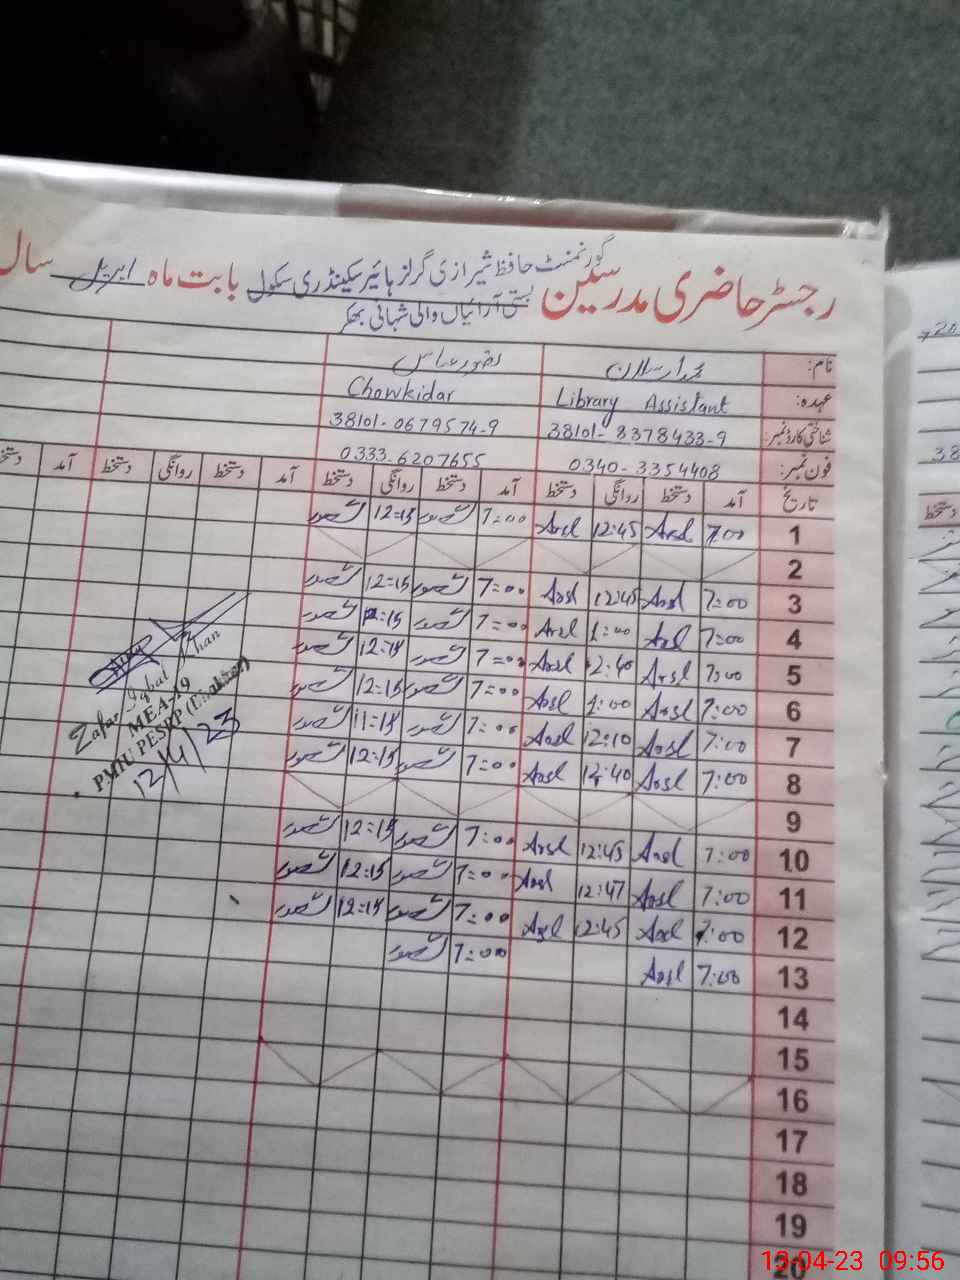 گورنمنٹ حافظ شیرازی گرلز ہائیر سیکنڈری سکول
رجسٹر حاضری مدرسین بابت ماہ اپریل سال
بستی آرائیاں والی شہانی بھکر
نام:
عہدہ: Library Assistant Chowkidar
شناختی کارڈ نمبر: 38101-8378433-9 38101-0679574-9
فون نمبر: 0340-3354408 0333-6207655
تاریخ آمد دستخط روانگی دستخط آمد دستخط روانگی دستخط آمد دستخط روانگی دستخط آمد
1 7:00 Arsl 12:45 Arsl 7=00 12=15
2
3 7:00 Arsl 12:45 Arsl 7=00 12=15
4 7:00 Arsl 1:00 Arsl 7=00 12:15
5 7:00 Arsl 12:40 Arsl 7=00
6 7:00 Arsl 1:00 Arsl 7=00 12=15
7 7:00 Arsl 12:10 Arsl 7=00 11=15
8 7:00 Arsl 12:40 Arsl 7=00 12=15
9
10 7:00 Arsl 12:45 Arsl 7=00 12=15
11 7:00 Arsl 12:47 Arsl 7=00 12=15
12 7:00 Arsl 12:45 Arsl 7=00 12=15
13 7:00 Arsl 7=00
14
15
16
17
18
19
20
Zafar Iqbal Khan
MEA-19
PMIU PESRP
12/4/23
38
دستخط
13-04-23 09:56